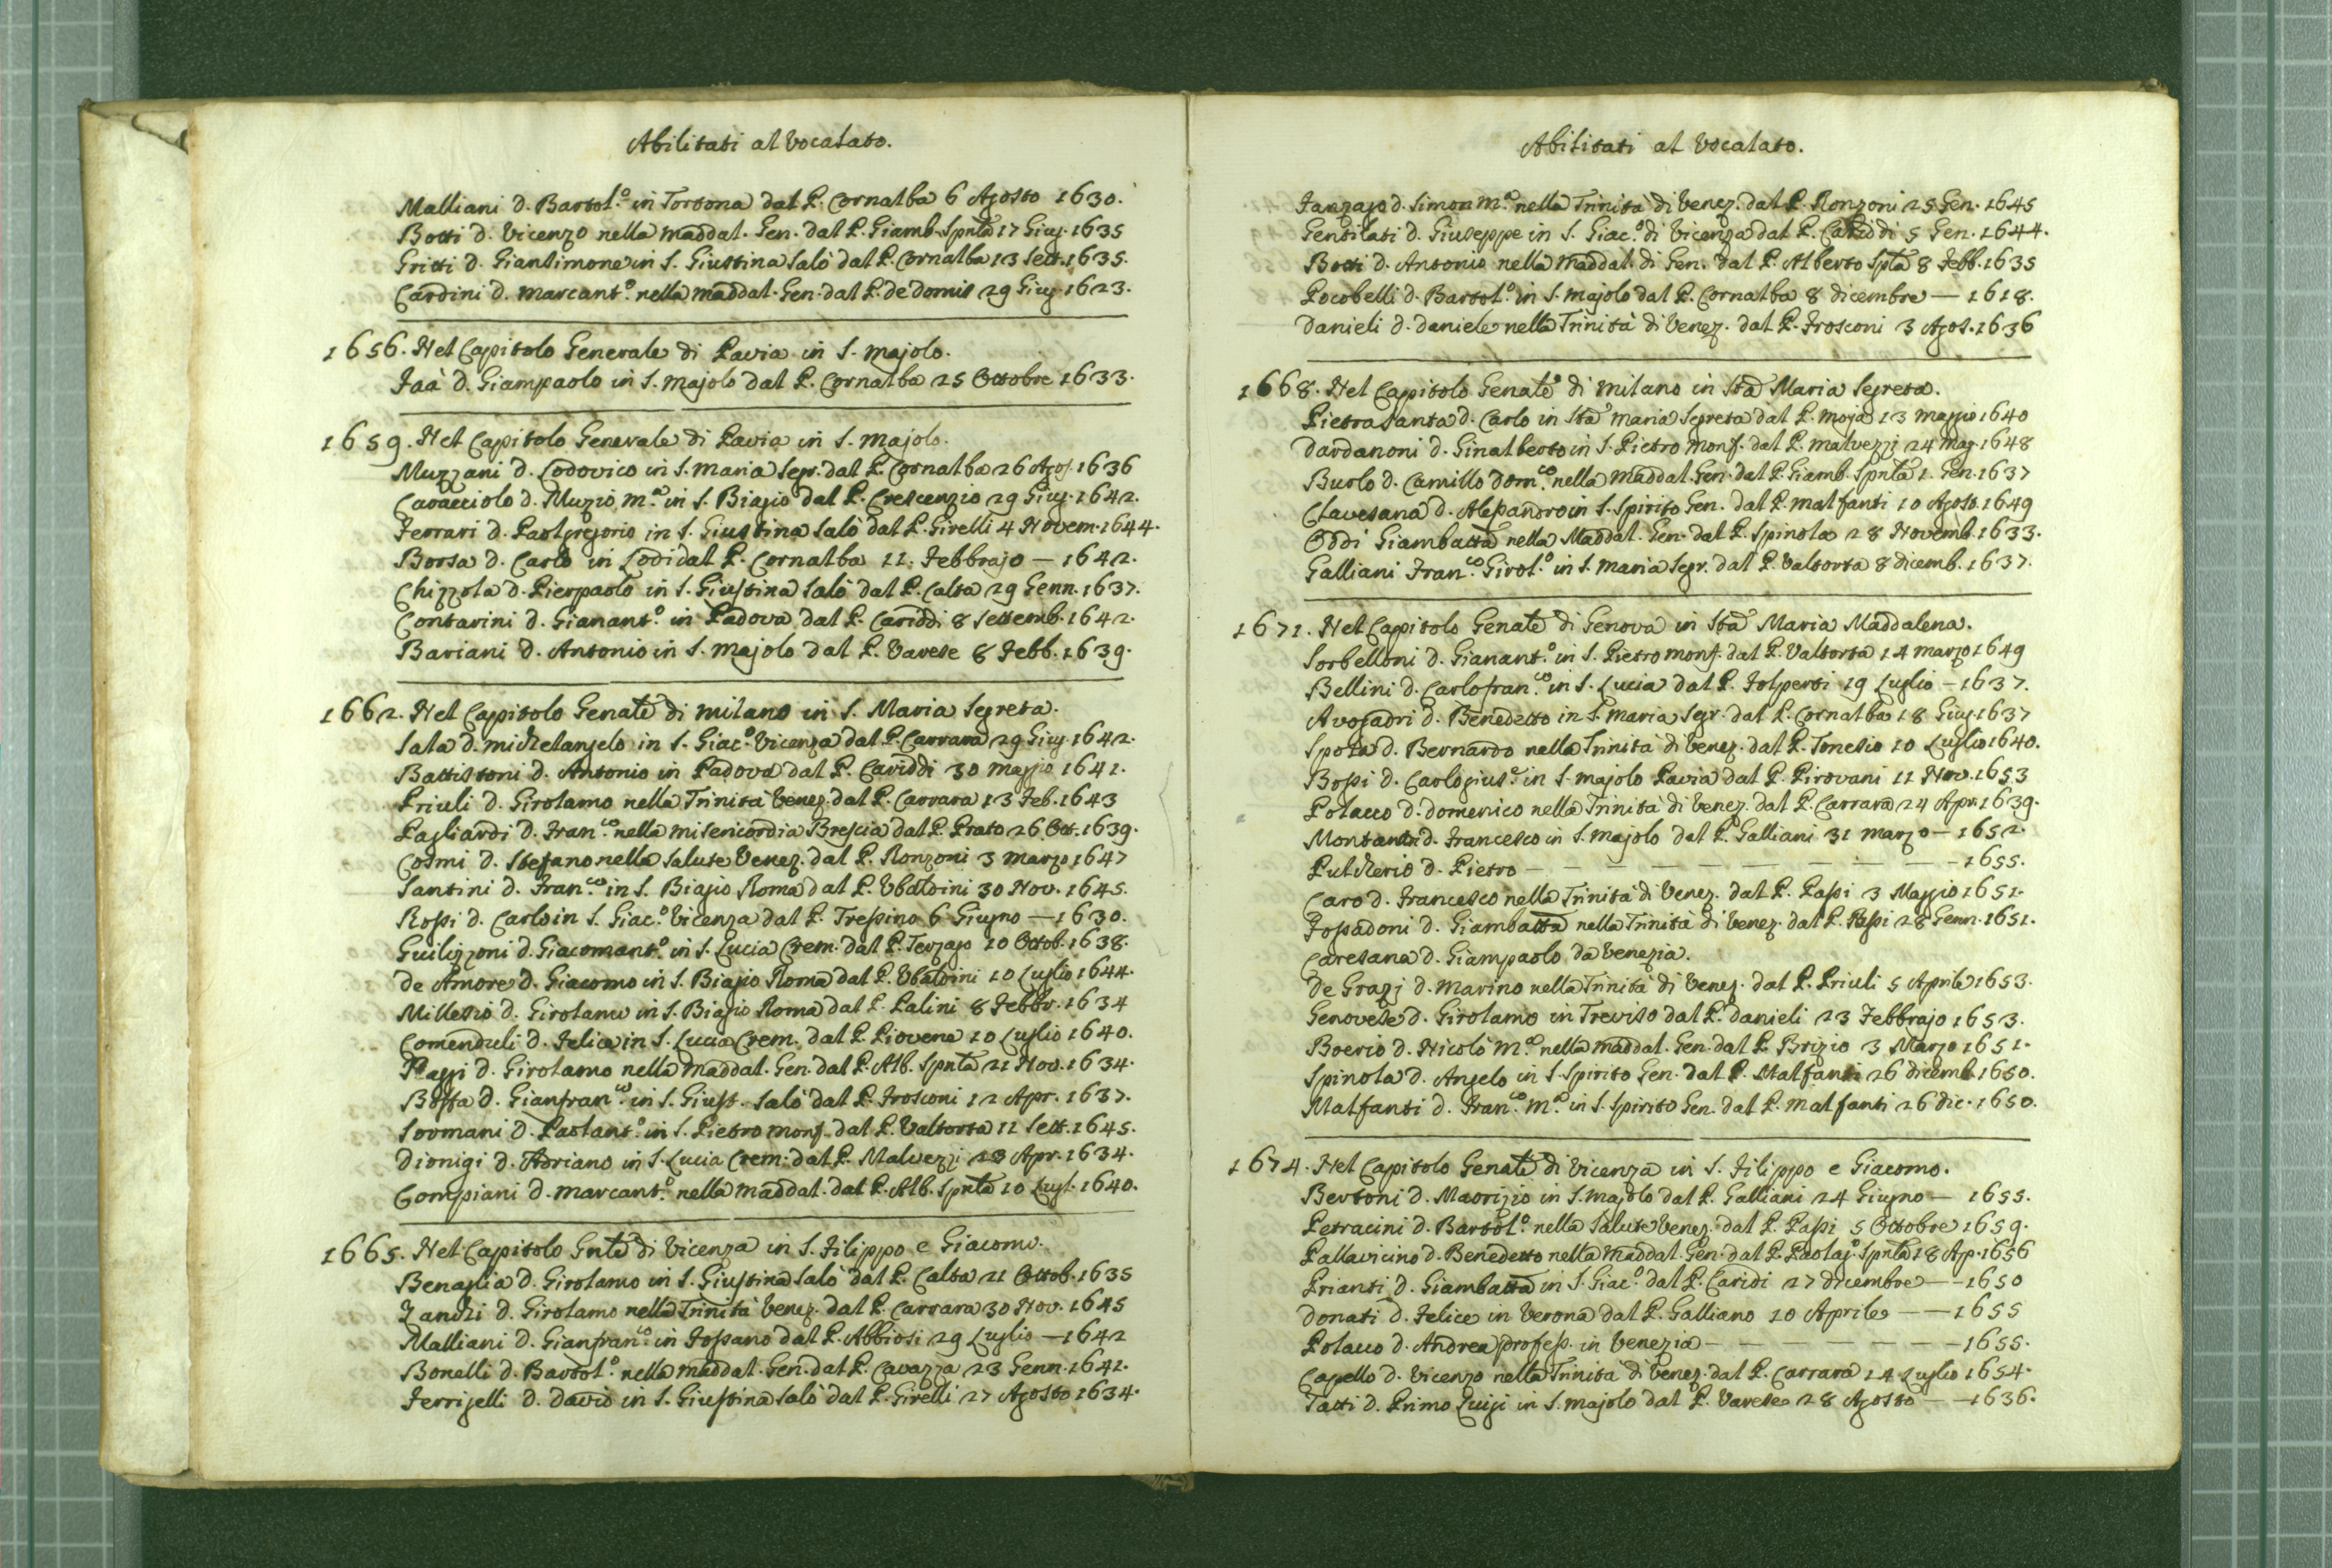 Abilitati al Vocalato.
Malliani d. Bartol.º in Tortona dal P. Cornalba 6 Agosto 1630.
Botti d. Vicenzo nella Maddal. Gen. dal P. Giamb. Spnla 17 Giug. 1635
Gritti d. Giansimone in S. Giustina Salò dal P. Cornalba 13 Sett. 1635.
Cardini d. Marcant.º nella Maddal. Gen. dal P. de Domis 29 Giug. 1623.
1656. Nel Capitolo Generale di Pavia in S. Majolo.
Faà d. Giampaolo in S. Majolo dal P. Cornalba 25 Ottobre 1633.
1659. Nel Capitolo Generale di Pavia in S. Majolo.
Muzzani d. Lodovico in S. Maria Segr. dal P. Cornalba 26 Agos. 1636
Caracciolo d. Muzio M.ª in S. Biagio dal P. Crescenzio 29 Giug. 1642.
Ferrari d. Paolgregorio in S. Giustina Salò dal P. Girelli 4 Novem. 1644.
Borsa d. Carlo in Lodi dal P. Cornalba 11. Febbrajo — 1642.
Chizzola d. Pierpaolo in S. Giustina Salò dal P. Calta 29 Genn. 1637.
Contarini d. Gianant.º in Padova dal P. Cariddi 8 Settemb. 1642.
Bariani d. Antonio in S. Majolo dal P. Varese 8 Febb. 1639.
1662. Nel Capitolo Genale di Milano in S. Maria Segreta.
Sala d. Michelangelo in S. Giac.º Vicenza dal P. Carrara 29 Giug. 1642.
Battistoni d. Antonio in Padova dal P. Cariddi 30 Maggio 1641.
Priuli d. Girolamo nella Trinità Venez. dal P. Carrara 13 Feb. 1643
Pagliardi d. Fran.co nella Misericordia Brescia dal P. Prato 26 Ott. 1639.
Cosmi d. Stefano nella Salute Venez. dal P. Ronzoni 3 Marzo 1647
Santini d. Fran.co in S. Biagio Roma dal P. Ubaldini 30 Nov. 1645.
Rossi d. Carlo in S. Giac.º Vicenza dal P. Tressino 6 Giugno — 1630.
Guilizzoni d. Giacomant.º in S. Lucia Crem. dal P. Terzago 10 Ottob. 1638.
de Amore d. Giacomo in S. Biagio Roma dal P. Ubaldini 10 Luglio 1644.
Millesio d. Girolamo in S. Biagio Roma dal P. Palini 8 Febbr. 1634
Comenduli d. Felice in S. Lucia Crem. dal P. Piovene 10 Luglio 1640.
d. Girolamo nella Maddal. Gen. dal P. Alb. Spnla 21 Nov. 1634.
d. Gianfran.co in S. Giust. Salò dal P. Frosconi 12 Apr. 1637.
Sormani d. Paolant.º in S. Pietro Monf. dal P. Valtorta 11 Sett. 1645.
Dionigi d. Adriano in S. Lucia Crem. dal P. Malvezzi 23 Apr. 1634.
Compiani d. Marcant.º nella Maddal. dal P. Alb. Spnla 10 Lugl. 1640.
1665. Nel Capitolo Gnle di Vicenza in S. Filippo e Giacomo.
Benaglia d. Girolamo in S. Giustina Salò dal P. Calta 21 Ottob. 1635
Zanchi d. Girolamo nella Trinità Venez. dal P. Carrara 30 Nov. 1645
Malliani d. Gianfran.co in Fossano dal P. Abbiosi 29 Luglio — 1642
Bonelli d. Bartol.º nella Maddal. Gen. dal P. Cavazza 23 Genn. 1641.
Ferrigelli d. David in S. Giustina Salò dal P. Girelli 27 Agosto 1634.
Abilitati al Vocalato.
d. Simon M.ª nella Trinità di Venez. dal P. Ronzoni 25 Gen. 1645
Gentilati d. Giuseppe in S. Giac.º di Vicenza dal P. Cariddi 5 Gen. 1644.
Botti d. Antonio nella Maddal. di Gen. dal P. Alberto Spla 8 Febb. 1635
Pocobelli d. Bartol.º in S. Majolo dal P. Cornalba 8 Dicembre — 1618.
Danieli d. Daniele nella Trinità di Venez. dal P. Frosconi 3 Agos. 1636
1668. Nel Capitolo Genale di Milano in Sta Maria Segreta.
Pietrasanta d. Carlo in Sta Maria Segreta dal P. Moja 13 Maggio 1640
Dardanoni d. Ginalberto in S. Pietro Monf. dal P. Malvezzi 24 Mag. 1648
Burlo d. Camillo Dom.co nella Maddal. Gen. dal P. Giamb. Spnla 1. Gen. 1637
Clavesana d. Alessandro in S. Spirito Gen. dal P. Malfanti 10 Agost. 1649
Oddi Giambatta nella Maddal. Gen. dal P. Spinola 28 Novemb. 1633.
Galliani Fran.co Girol.º in S. Maria Segr. dal P. Valtorta 8 dicemb. 1637.
1671. Nel Capitolo Genale di Genova in Sta Maria Maddalena.
Sorbelloni d. Gianant.º in S. Pietro Monf. dal P. Valtorta 14 Marzo 1649
Bellini d. Carlofran.co in S. Lucia dal P. Folperti 19 Luglio — 1637.
Avogadri d. Benedetto in S. Maria Segr. dal P. Cornalba 18 Giug. 1637
Spota d. Bernardo nella Trinità di Venez. dal P. Tonesio 10 Luglio 1640.
Bossi d. Carlogius.e in S. Majolo Pavia dal P. Pirovani 11 Nov. 1653
Polacco d. Domenico nella Trinità di Venez. dal P. Carrara 24 Apr. 1639.
d. Francesco in S. Majolo dal P. Galliani 31 Marzo — 1652.
Pulcherio d. Pietro — — — — — — — 1655.
Caro d. Francesco nella Trinità di Venez. dal P. Passi 3 Maggio 1651.
Fossadoni d. Giambatta nella Trinità di Venez. dal P. Passi 28 Genn. 1651.
Caresana d. Giampaolo da Venezia.
De Grazj d. Marino nella Trinità di Venez. dal P. Priuli 5 Aprile 1653.
Genovese d. Girolamo in Treviso dal P. Danieli 23 Febbrajo 1653.
Boerio d. Nicolò M.ª nella Maddal. Gen. dal P. Brizio 3 Marzo 1651.
Spinola d. Angelo in S. Spirito Gen. dal P. Malfanti 26 dicemb. 1650.
Malfanti d. Fran.co M.ª in S. Spirito Gen. dal P. Malfanti 26 dic. 1650.
1674. Nel Capitolo Genale di Vicenza in S. Filippo e Giacomo.
Bertoni d. Maorizio in S. Majolo dal P. Galliani 24 Giugno — 1655.
Petracini d. Bartol.º nella Salute Venez. dal P. Passi 5 Ottobre 1659.
Pallavicino d. Benedetto nella Maddal. Gen. dal P. Paolag.º Spnla 18 Ap. 1656
Prianti d. Giambatta in S. Giac.º dal P. Caridi 27 dicembre — 1650
Donati d. Felice in Verona dal P. Galliano 10 Aprile — 1655
Polacco d. Andrea profess. in Venezia — — — — — 1655.
Capello d. Vicenzo nella Trinità di Venez. dal P. Carrara 14 Luglio 1654.
Tatti d. Primo Luigi in S. Majolo dal P. Varese 28 Agosto — 1636.